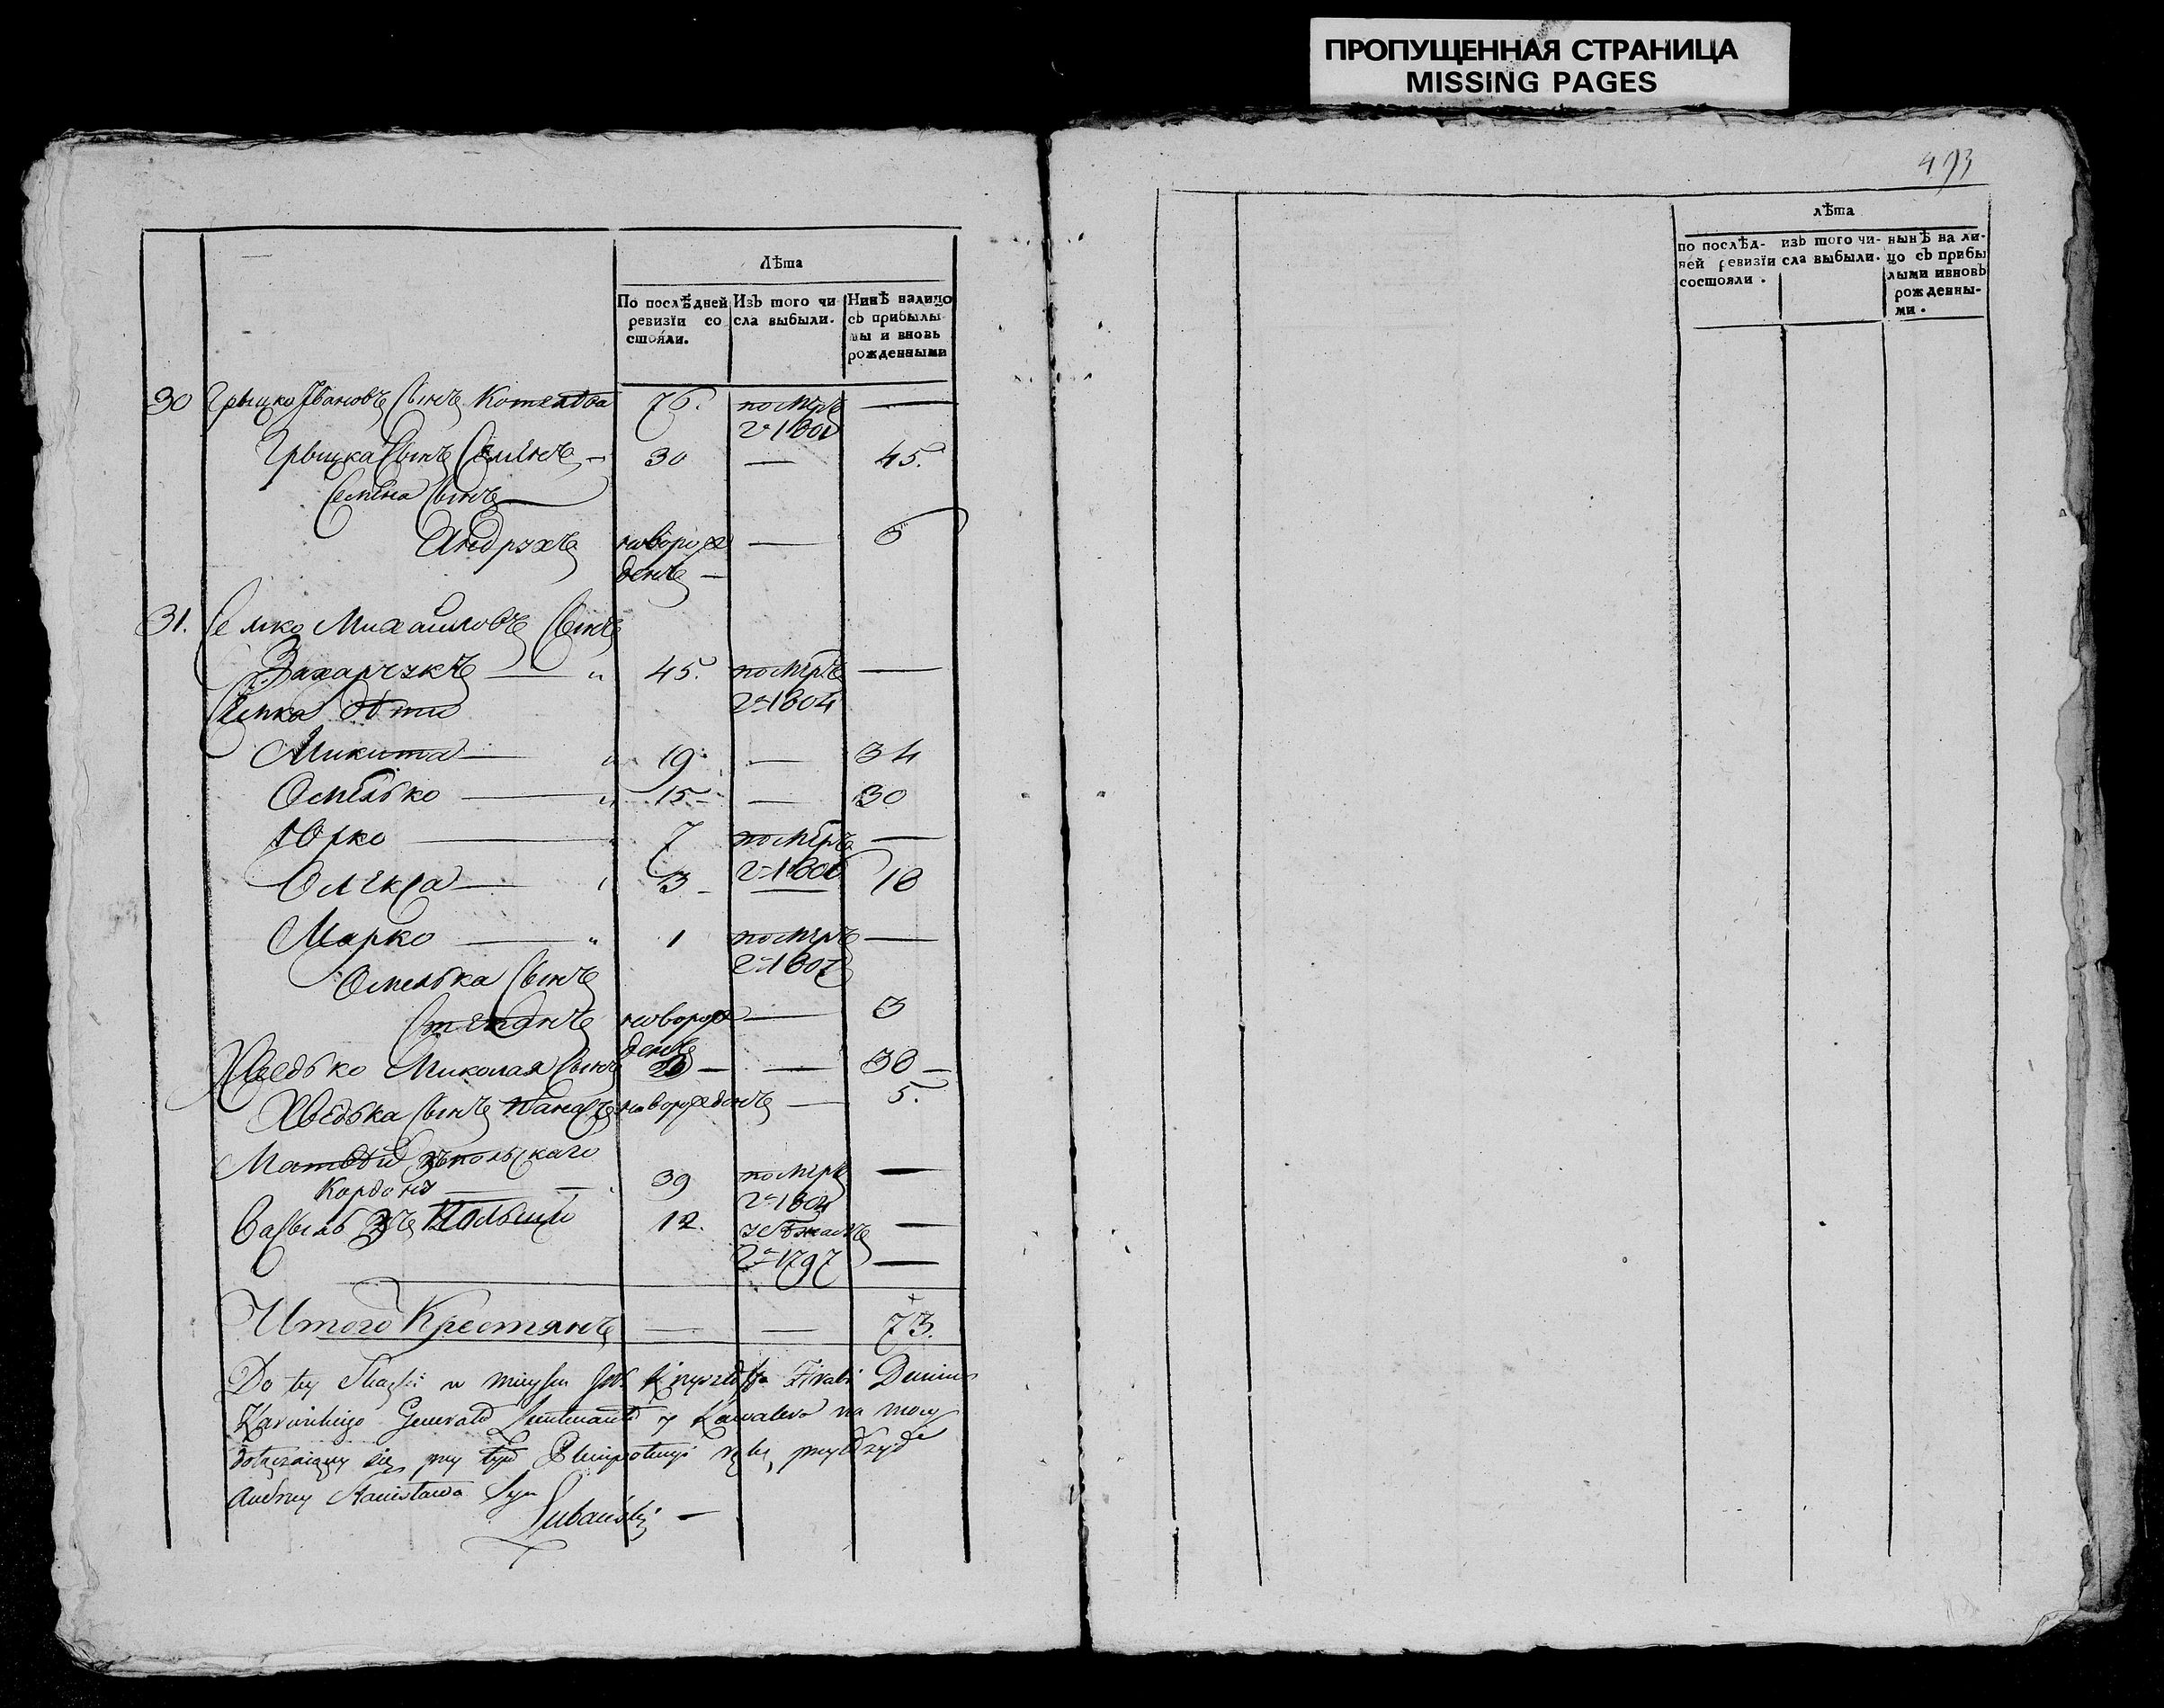 ПРОПУЩЕННАЯ СТРАНИЦА
MISSING PAGES
493
Лѣта
По послѣдней ревизїи состояли.
Изъ того числа выбыли.
Нинѣ налицо съ прибылымы и вновь рожденными
30 Грыцко Ивановъ Сынъ 76. помѣръ —
Грыцка Сынъ Семенъ — 30 — 45.
Семена Сынъ
Андрухъ новорожденъ — 6
31. Семко Михайловъ Сынъ
Захарчукъ — 45. померъ —
1804
Семка дѣти
Микита — 19 — 34
Омелько — 15 — 30
Юрко — 7 померъ —
Олекса — 3 — 18
Марко — 1 померъ —
1807
Омелька Сынъ
Степанъ новорожденъ — 3
Хведько Николая Сынъ — — 38 —
Хведька Сынъ новорожденъ — 5.
Матвѣй зъ польскаго
Кордону — 39 померъ —
1804
Василь зъ Польши 12. збѣжалъ —
1797 —
Итого Крестянъ — — 73.
Do tey Skazki w mieyscu
Karwickiego Generała Leutenanta y Kawalera na mocy
dołączaiącey się przy tym Plenipotencyi rękę
Andrzey Stanisława Syn
Lubański —
лѣта
по послѣдней ревизїи состояли.
изъ того числа выбыли.
нынѣ на лицо съ прибылыми ивновь рожденными.